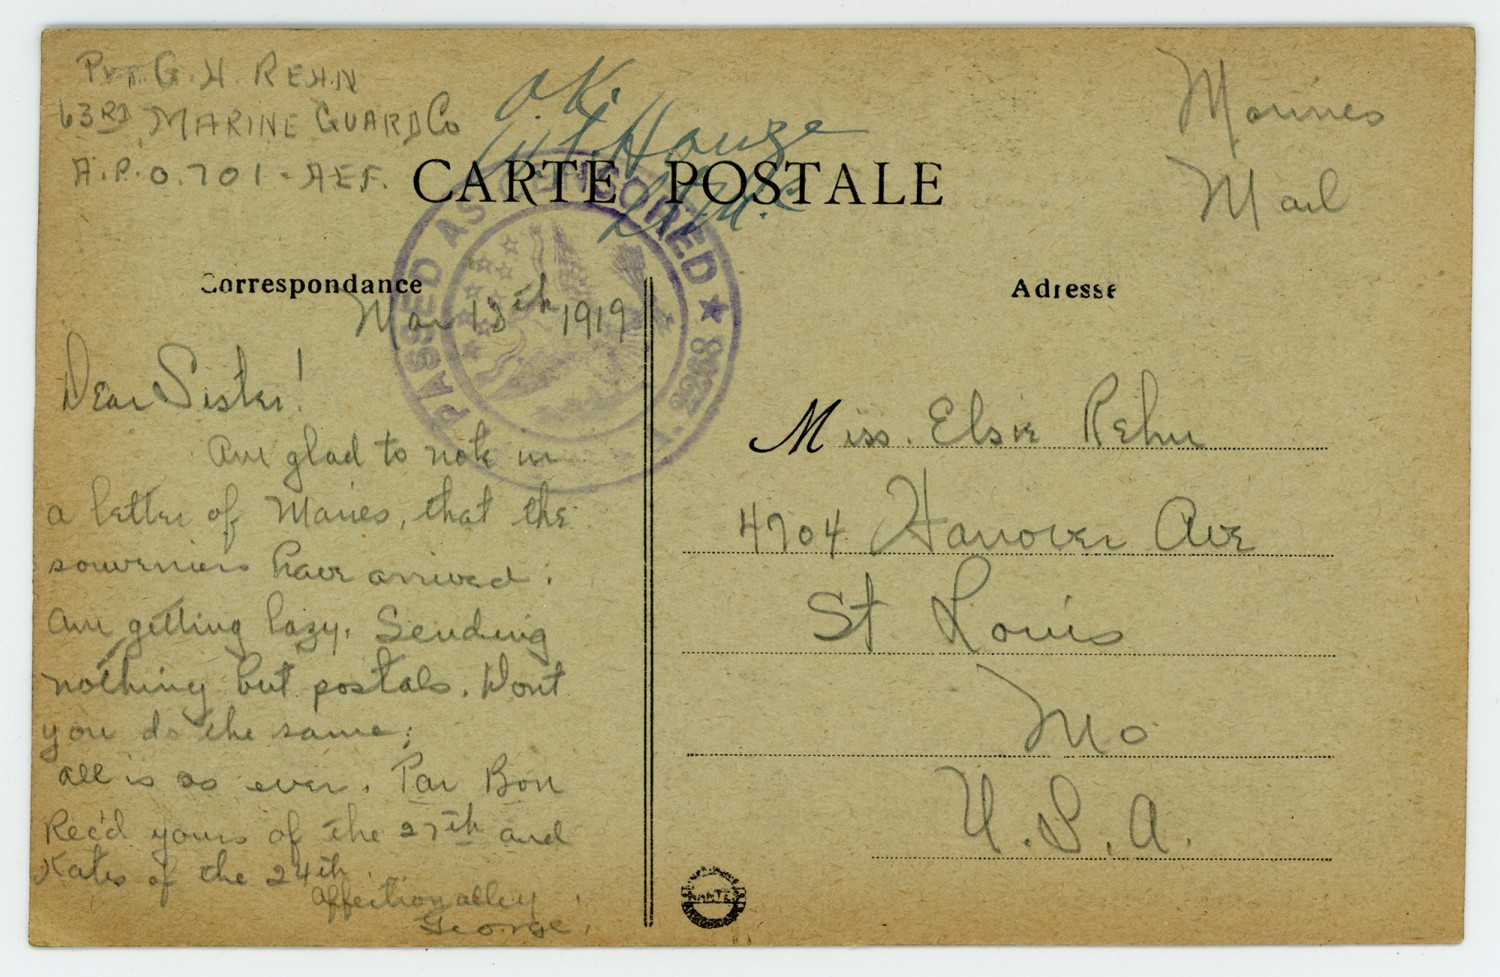 Pvt G. H Rehn
63RD Marine Guard Co
A.P.O. 701 - AEF.
O.K.
Marines
Mail
CARTE POSTALE
PASSED AS CENSORED
Correspondance
Adresse
Mar 18th 1919
Dear Sister!
Am glad to note in
a letter of Maries, that the
souveniers have arrived.
Am getting lazy. Sending
nothing but postals. Dont
you do the same;
all is as ever. Par Bon
Rec'd yours of the 27th and
Kates of the 24th.
Affectionalley
George.
Miss. Elsie Rehn
4704 Hanover Ave
St Louis
Mo
U.S.A.